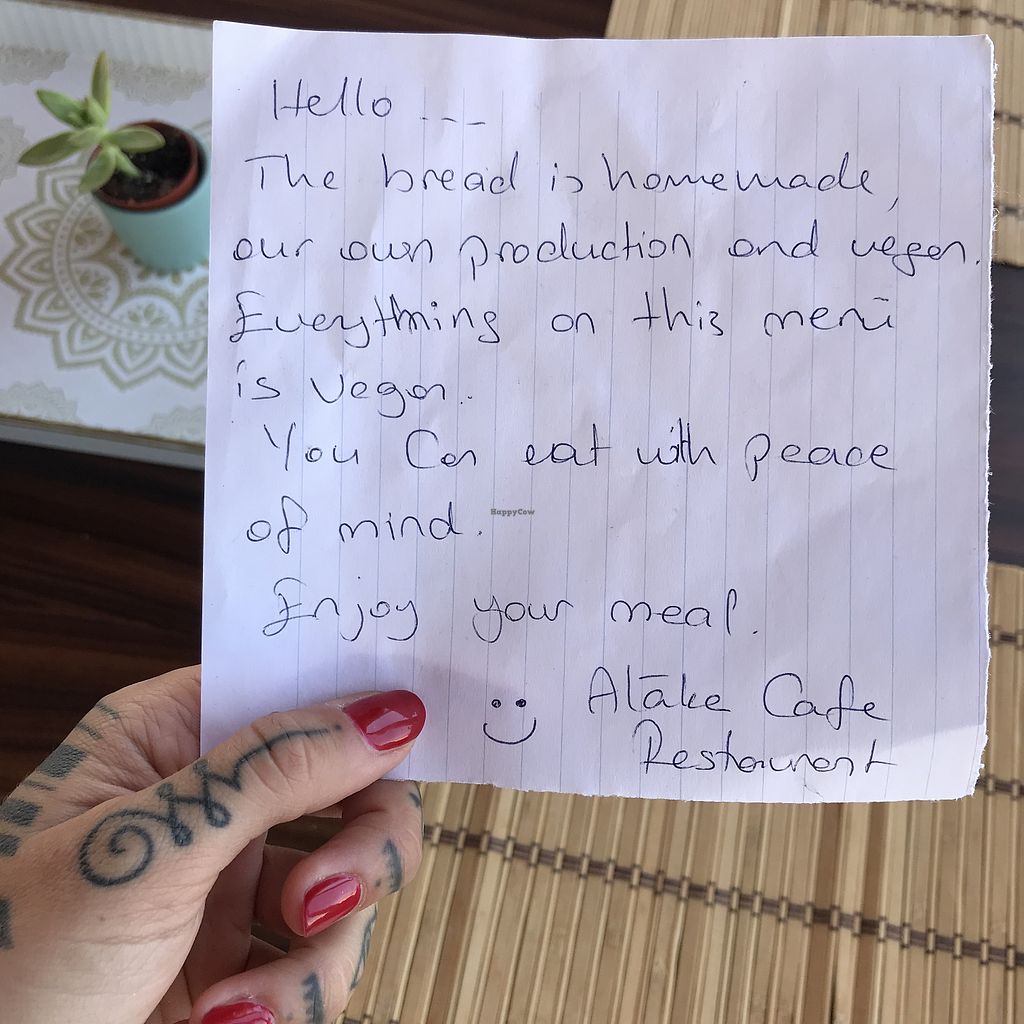 Hello ---
The bread is homemade,
our own production and vegan.
Everything on this menü
is vegan.
You Can eat with peace
of mind.
HappyCow
Enjoy your meal.
Atāke Cafe
Restaurant